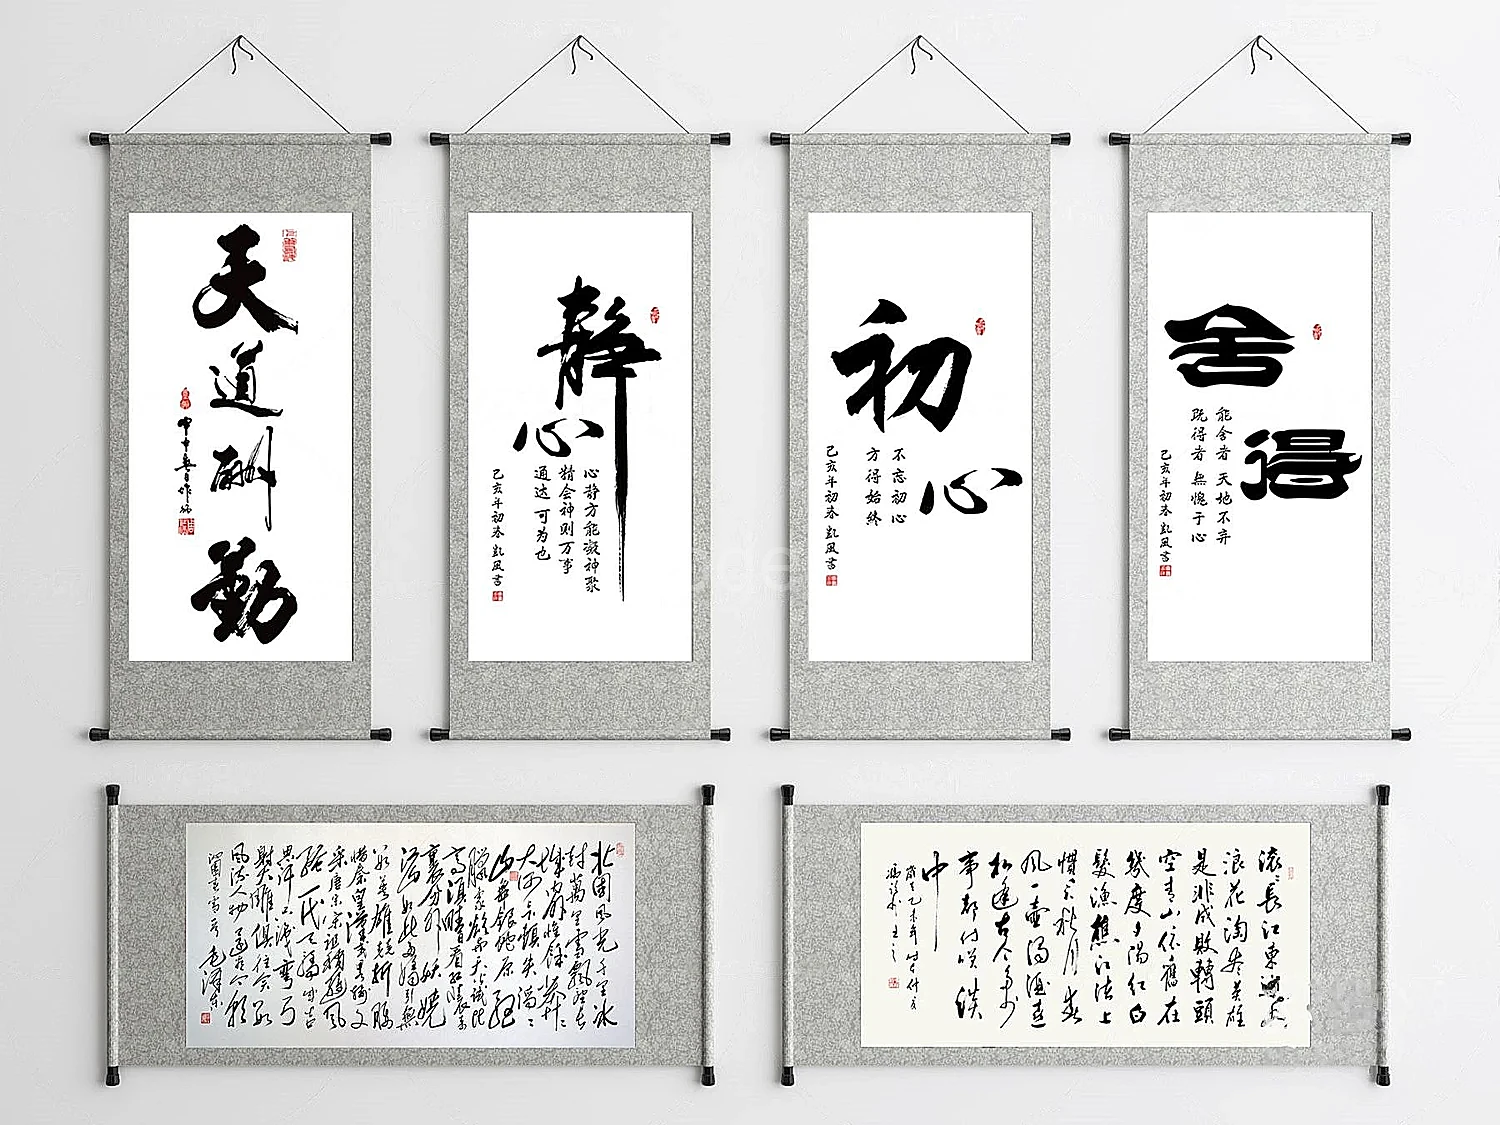 天道酬勤
靜心
心静方能凝神聚
精会神则万事
通达 可为也
己亥年初春凱風書
初心
不忘初心
方得始終
己亥年初春凱風書
舍得
能舍者 天地不弃
既得者 無愧于心
己亥年初春凱風書
北国风光千里冰
封萬里雪飘望长
城内外惟馀莽莽
大河上下顿失滔滔
山舞银蛇原驰
腊象欲与天公试比
高须晴日看红装素
裹分外妖娆
江山如此多娇引無
数英雄竞折腰
惜秦皇漢武略输文
采唐宗宋祖稍逊风
骚一代天骄成吉
思汗只识弯弓
射大雕俱往矣数
风流人物还看今朝
毛泽东
滚滚长江東逝水
浪花淘尽英雄
是非成敗轉頭
空青山依舊在
幾度夕陽红白
髮漁樵江渚上
慣看秋月春
风一壶濁酒喜
相逢古今多少
事都付笑談
中